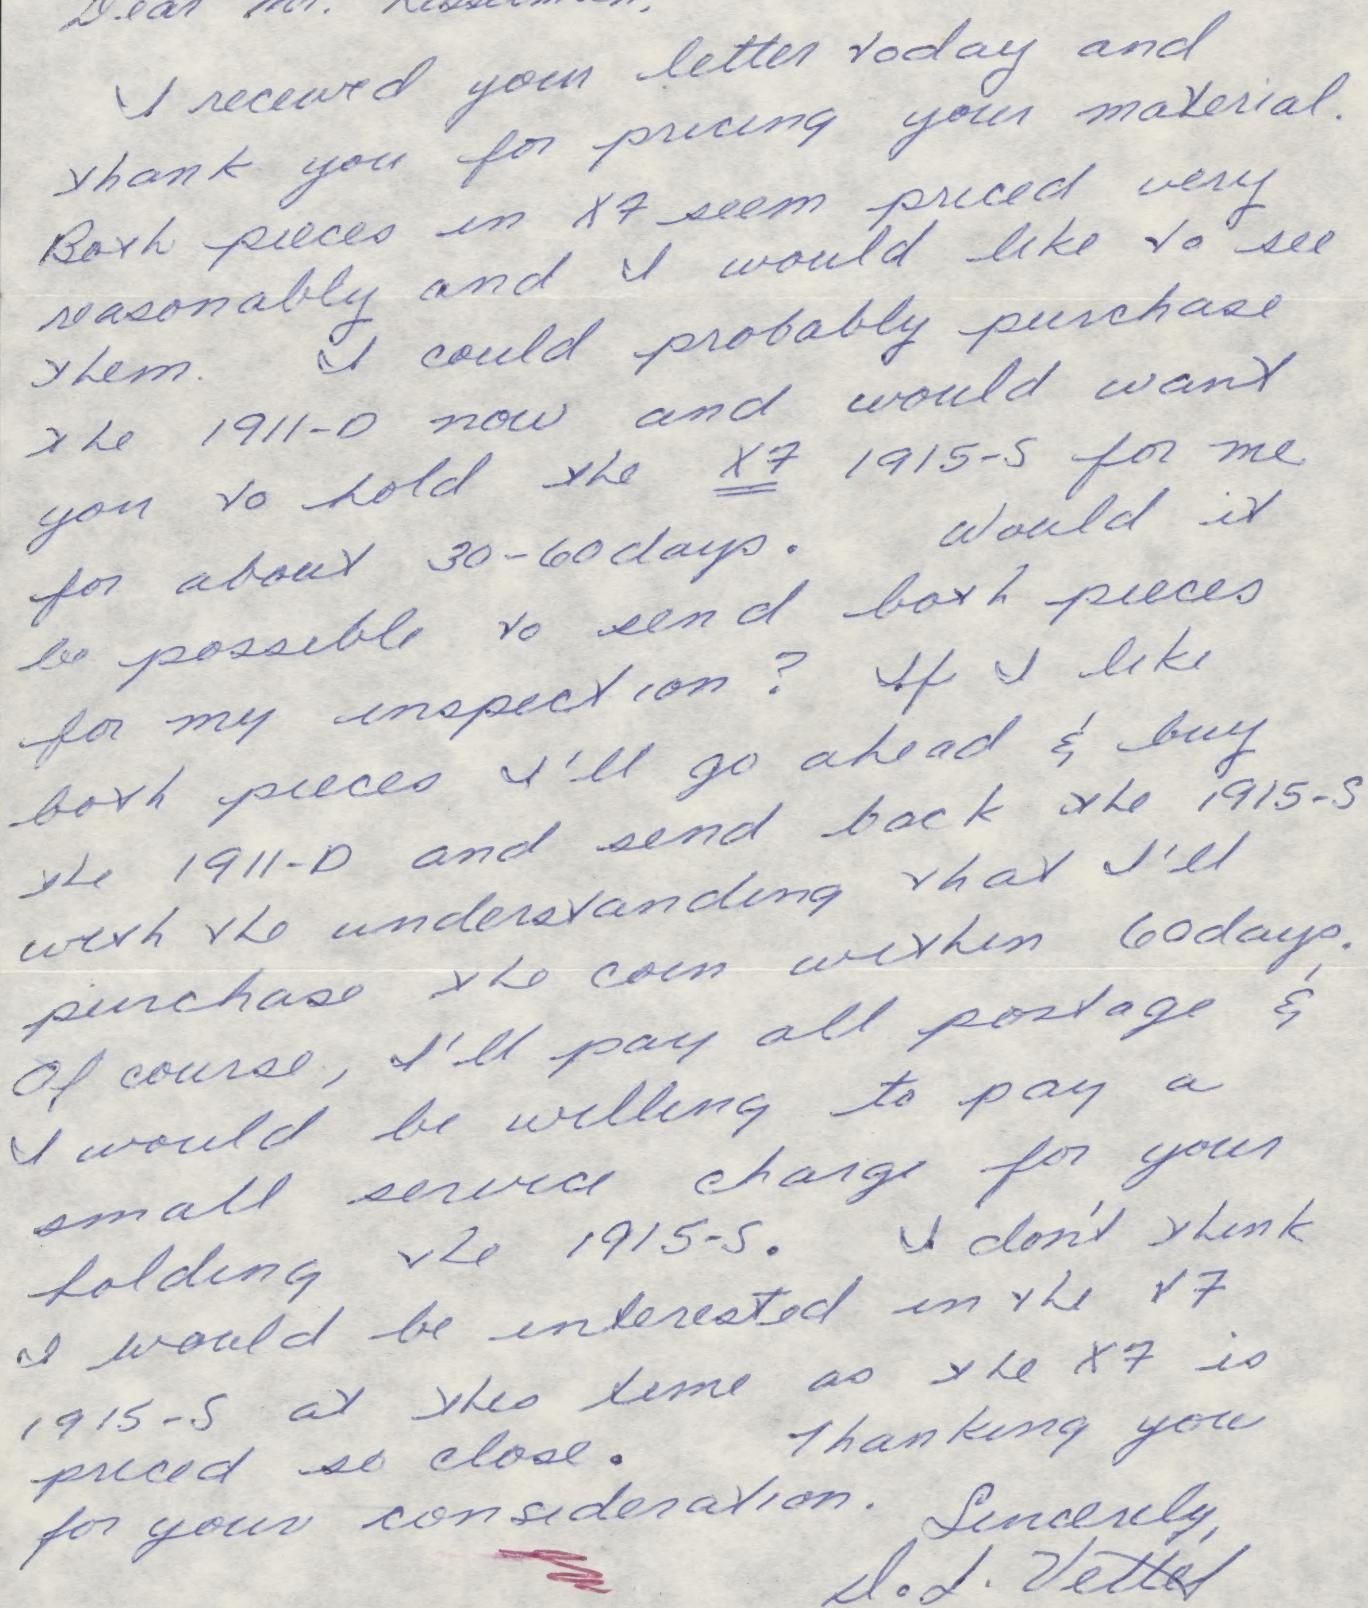 Dear Mr.
I received your letter today and
thank you for pricing your material.
Both pieces in X7 seem priced very
reasonably and I would like to see
them. I could probably purchase
the 1911-D now and would want
you to hold the X7 1915-S for me
for about 30-60 days. Would it
be possible to send both pieces
for my inspection? If I like
both pieces I'll go ahead & buy
the 1911-D and send back the 1915-S
with the understanding that I'll
purchase the coin within 60 days.
Of course, I'll pay all postage &
I would be willing to pay a
small service charge for your
holding the 1915-S. I don't think
I would be interested in the T7
1915-S at this time as the X7 is
priced so close. Thanking you
for your consideration.
Sincerely,